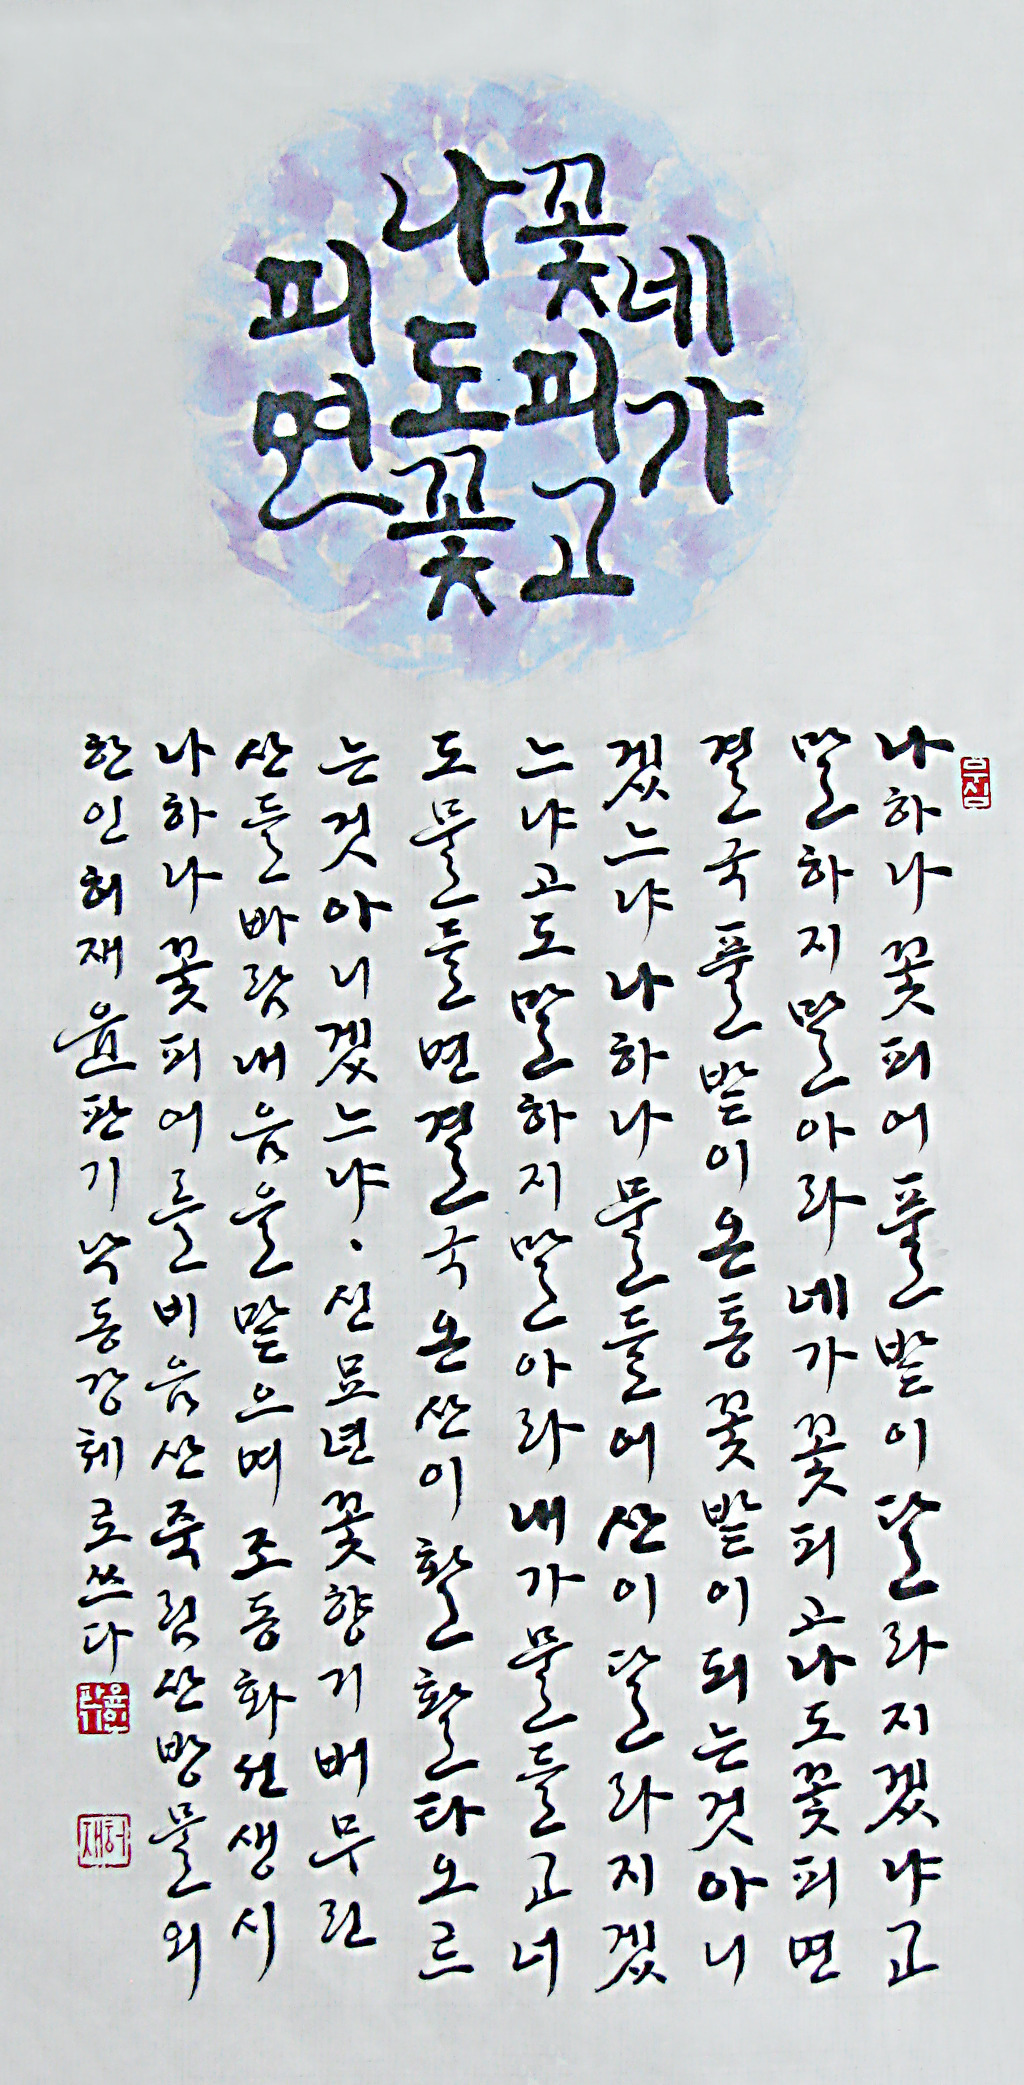 네가
꽃피고
나도꽃
피면
무심
나하나 꽃피어 풀밭이 달라지겠냐고
말하지말아라 네가 꽃피고나도꽃피면
결국풀밭이온통꽃밭이되는것아니
겠느냐 나하나물들어산이달라지겠
느냐고도말하지말아라 내가물들고너
도물들면결국온산이활활타오르
는것아니겠느냐、신묘년꽃향기 버무린
산들바람내음을맡으며 조동화선생시
나하나 꽃피어를비음산죽림산방물외
한인허재윤판기낙동강체로쓰다
윤판기
허재